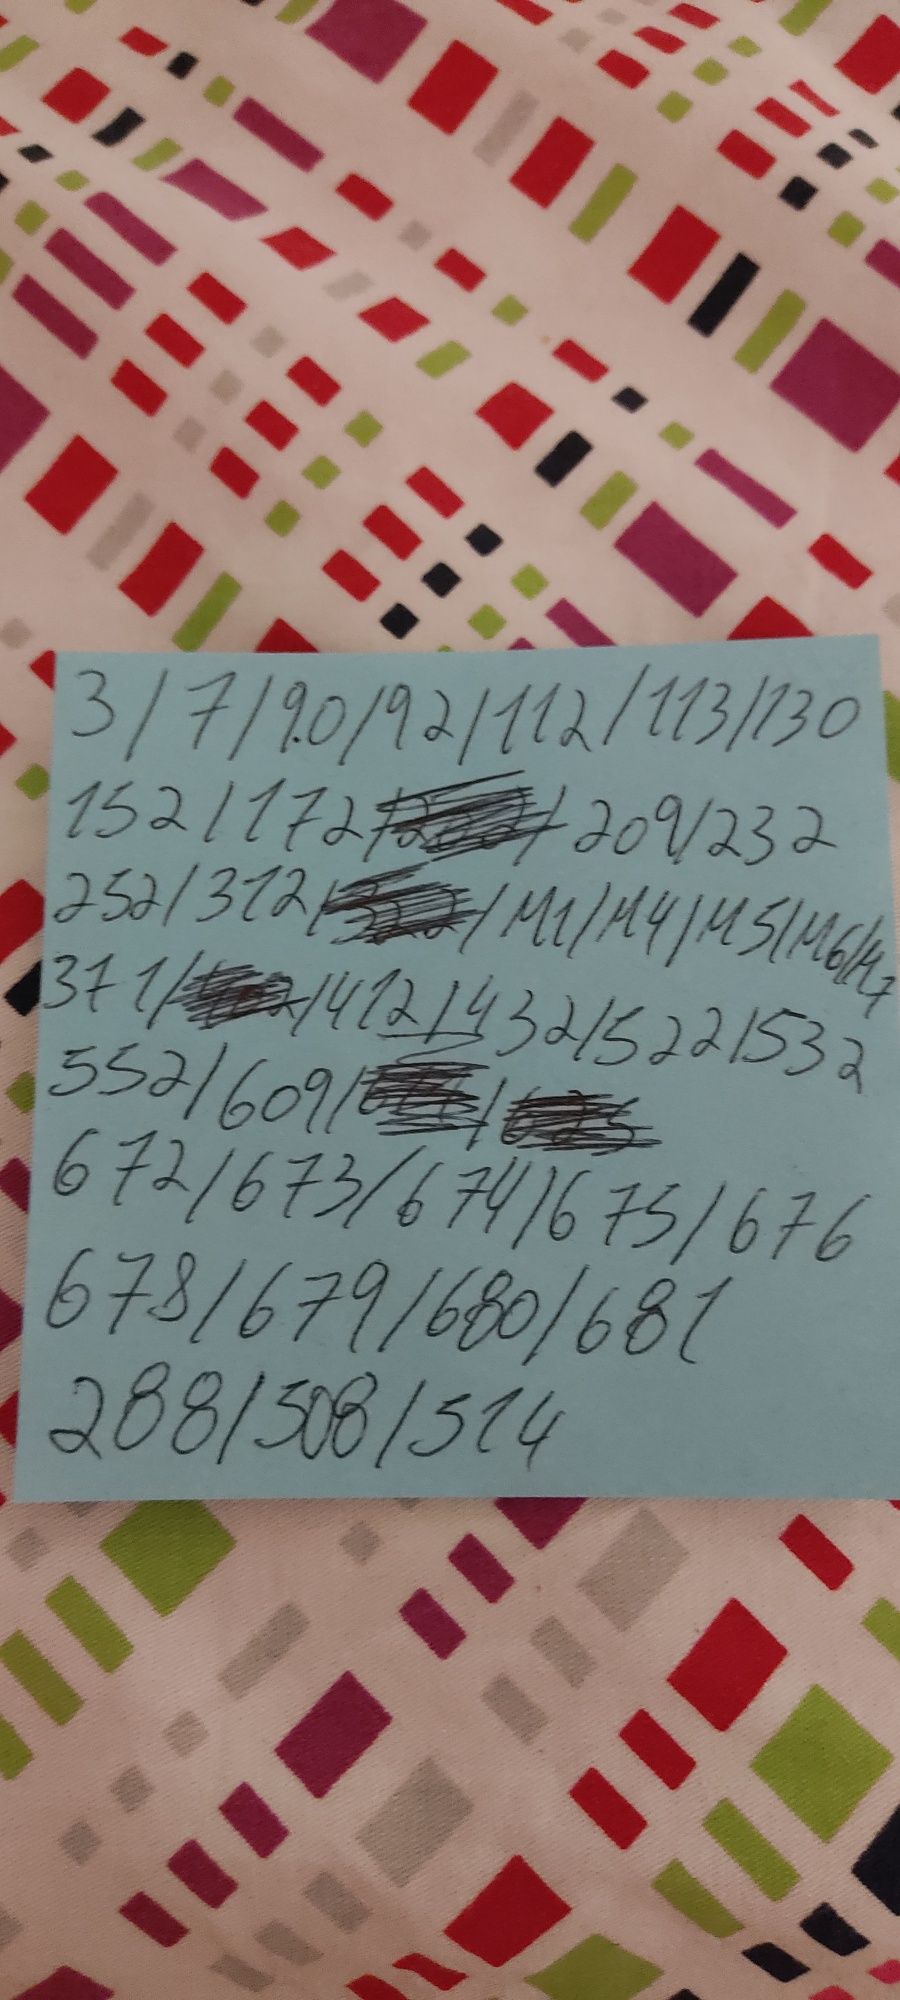 3/7/90/92/112/113/130
152/172/ / 209/232
252/312/ /M1/M4/M5/M6/M7
371/ /412/432/522/532
552/609/ /
672/673/674/675/676
678/679/680/681
288/508/514